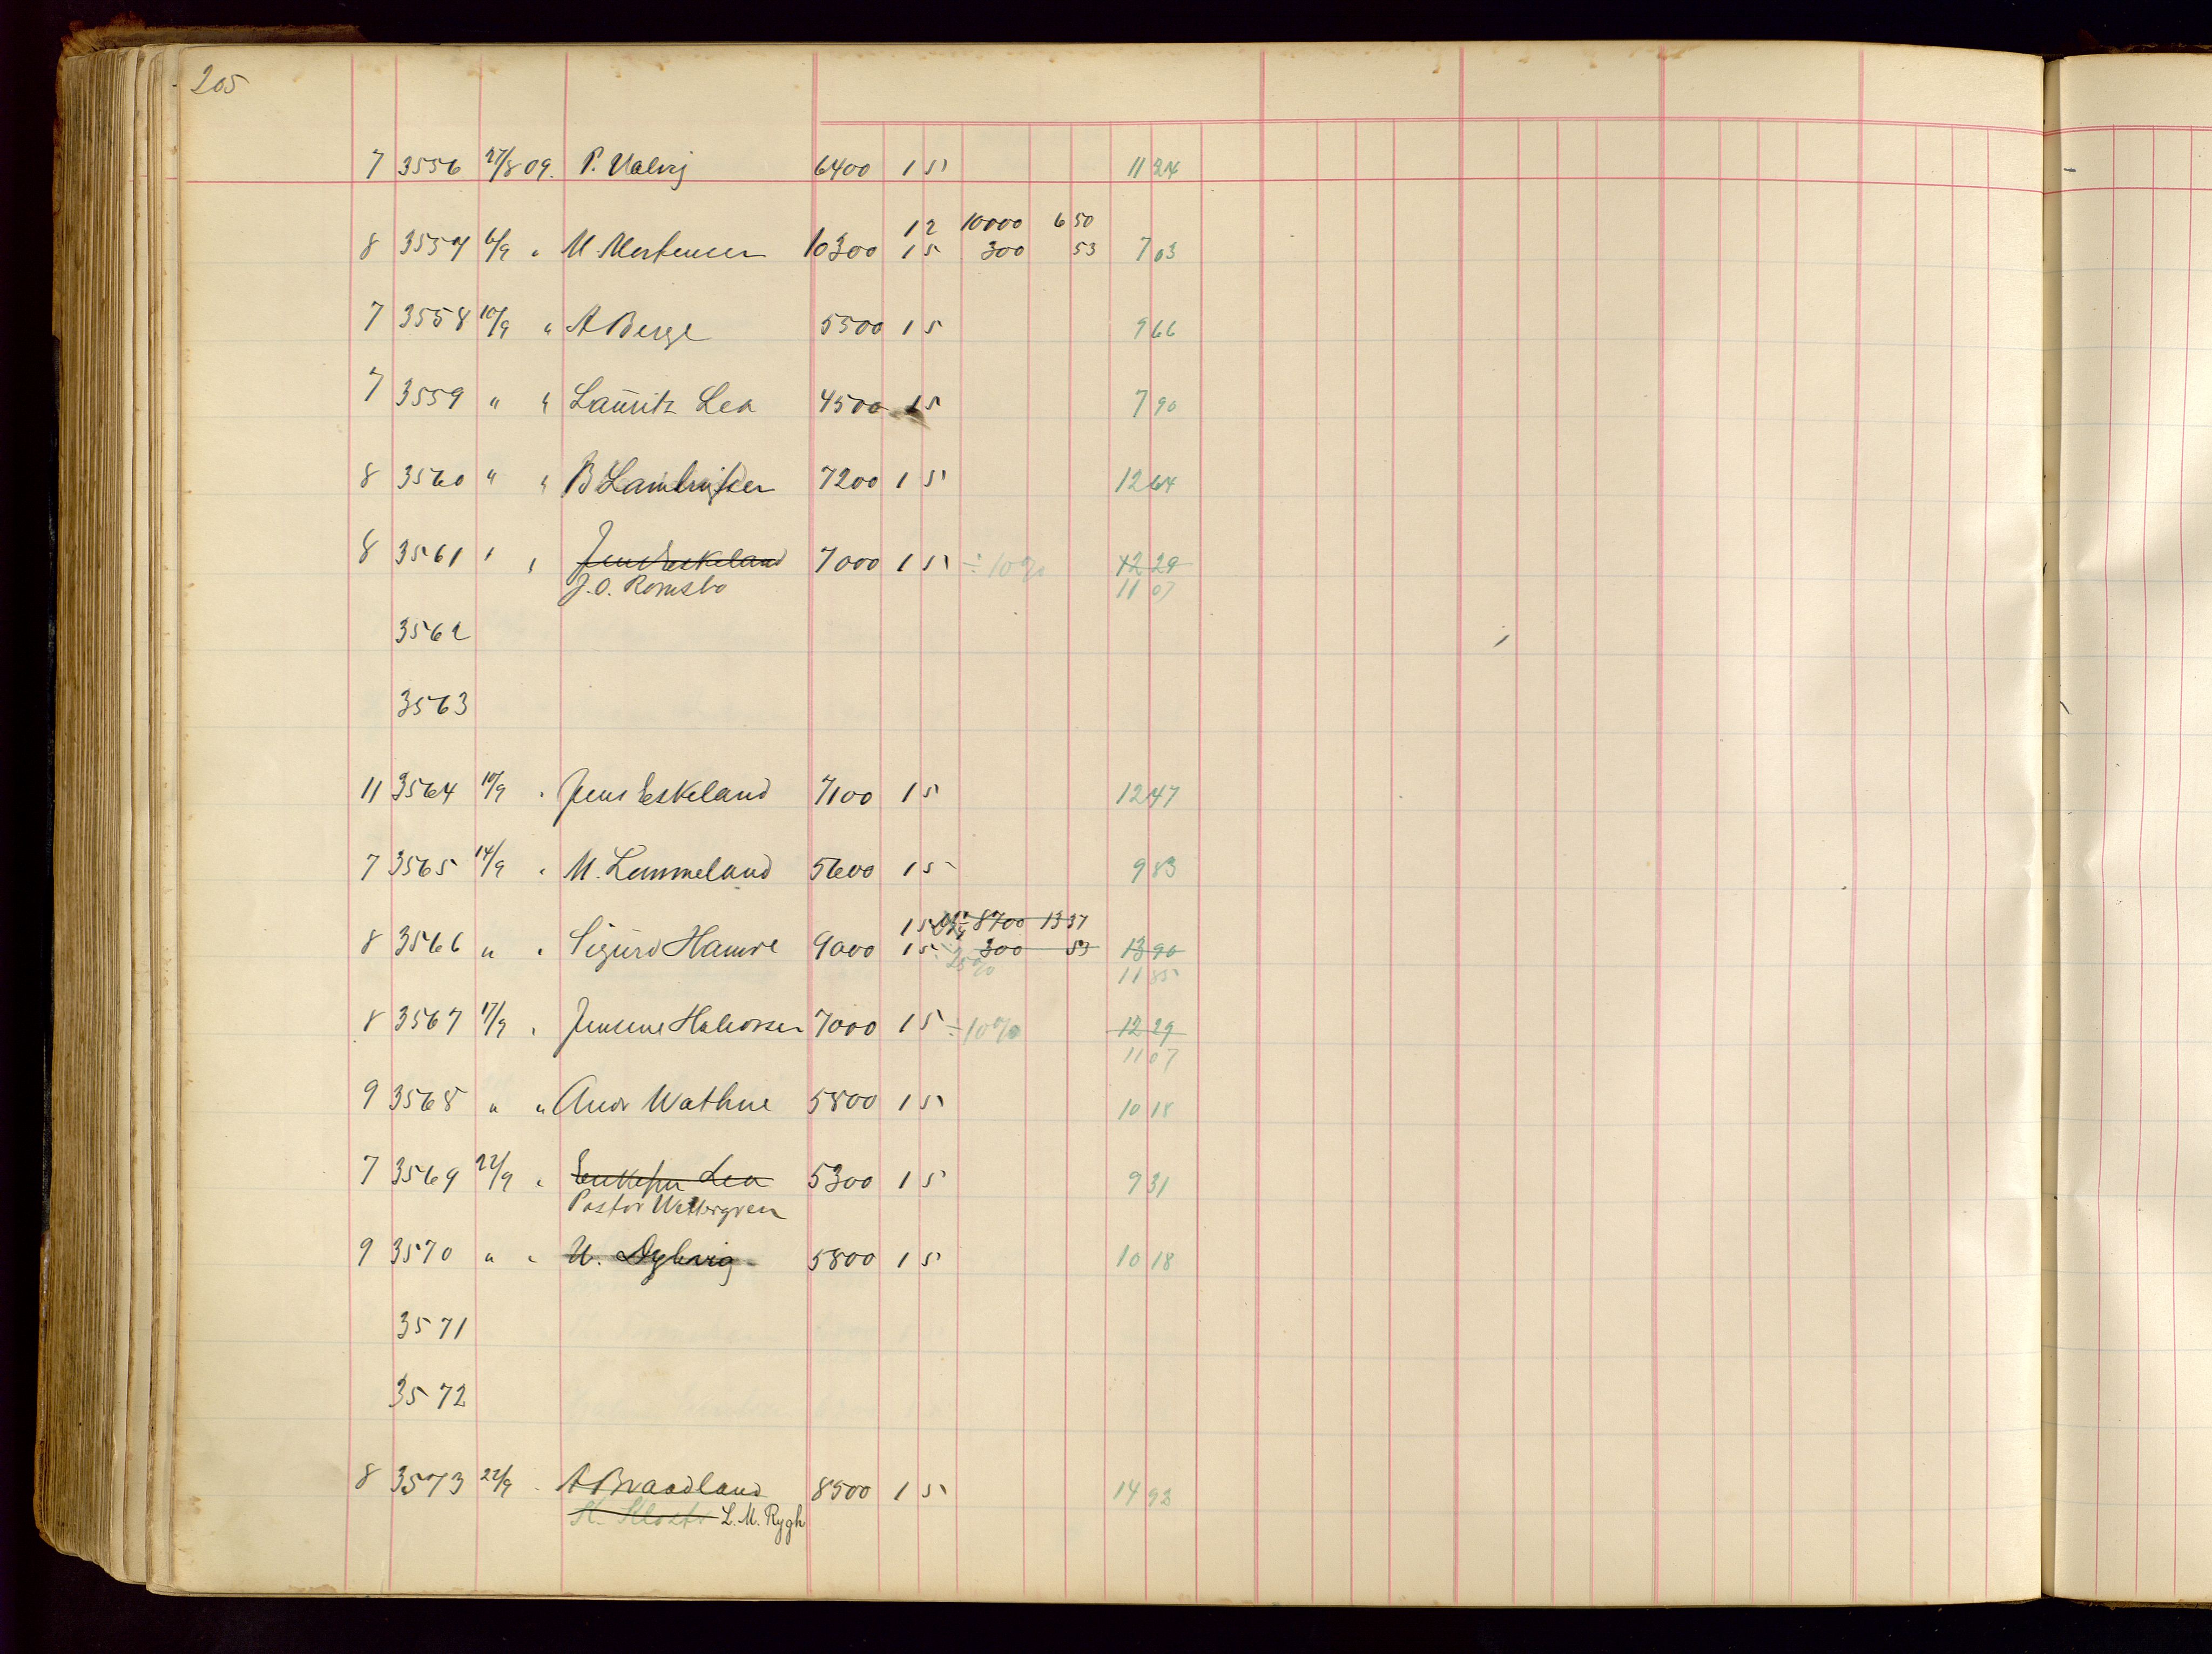 205
7 3556 27/8 09. P. Valvig 6400 1 5 11 24
1 2 10000 6 50
8 3557 6/9 " M Mortensen 10300 1 5 300 53 7 03
7 3558 10/9 " A Berge 5500 1 5 9 66
7 3559 " " Lauritz Lea 4500 1 5 7 90
8 3560 " " B Lauritzen 7200 1 5 12 64
8 3561 " " Jens Eskeland 7000 1 5 ÷10% 12 29
J.O. Romsbo 11 07
3562
3563
11 3564 10/9 " Jens Eskeland 7100 1 5 12 47
7 3565 14/9 " M. Lammeland 5600 1 5 9 83
1 5 8700 13 37
8 3566 " " Sigurd Hamre 9000 1 5 300 53 13 90
25% 11 85
8 3567 17/9 " Jensine Halvorsen 7000 1 5 ÷10% 12 29
11 07
9 3568 " " Andr Wathne 5800 1 5 10 18
7 3569 22/9 " Lea 5300 1 5 9 31
Pastor Wettergren
9 3570 " " Dybvig 5800 1 5 10 18
3571
3572
8 3573 22/9 " A Braadland 8500 1 5 14 93
L.M. Rygh